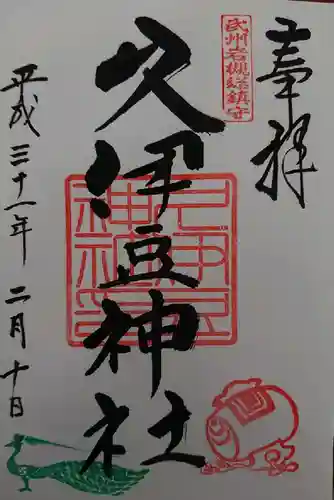 奉拝
武州岩槻総鎮守
久伊豆神社
久伊豆神社
平成三十一年二月十日